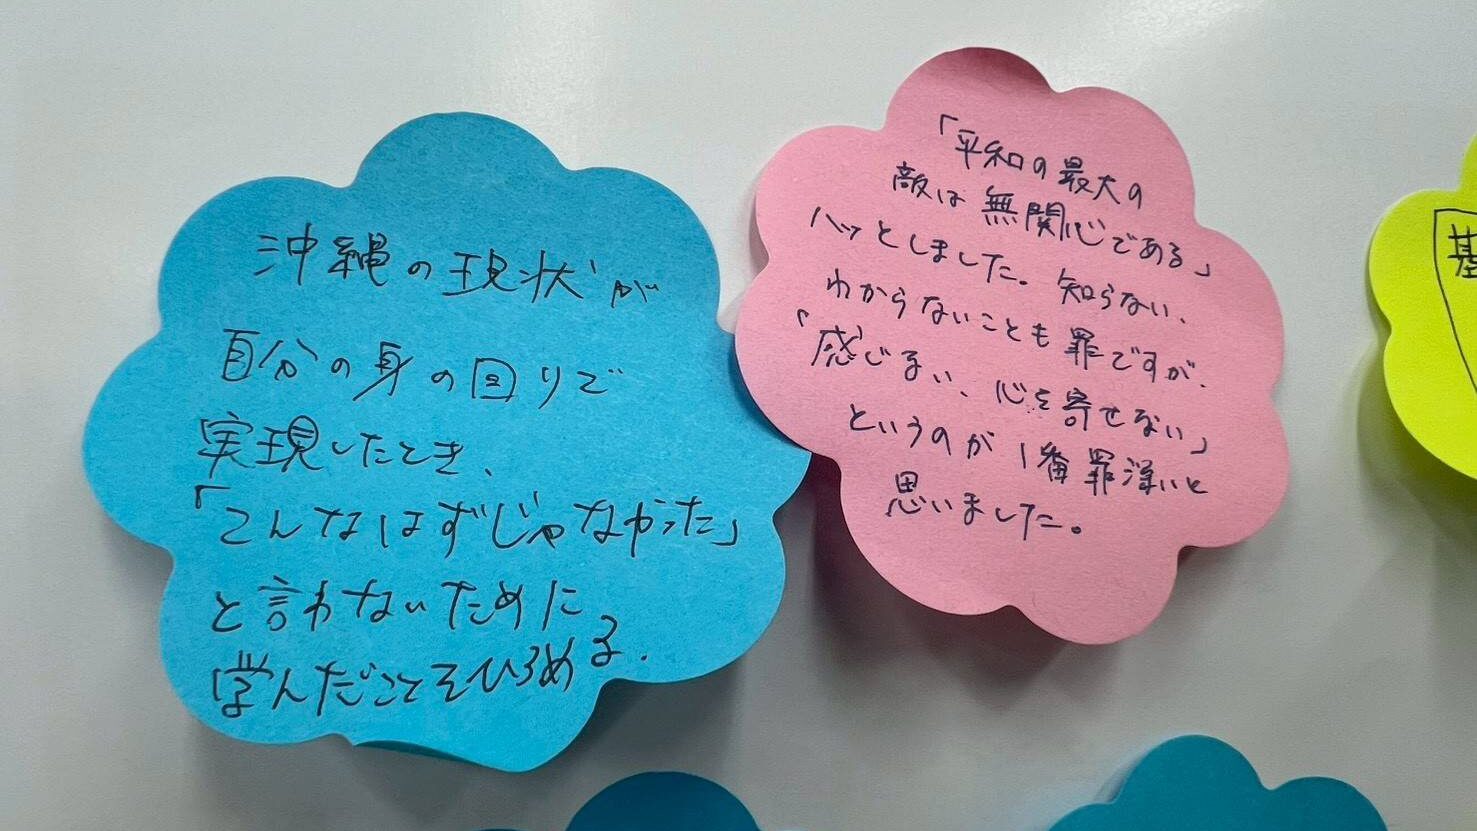 沖縄の現状が
自分の身の回りで
実現したとき、
「こんなはずじゃなかった」
と言わないために
学んだことをひろめる.
「平和の最大の
敵は無関心である」
ハッとしました。知らない、
わからないことも罪ですが、
「感じない、心を寄せない」
というのが1番罪深いと
思いました。
基